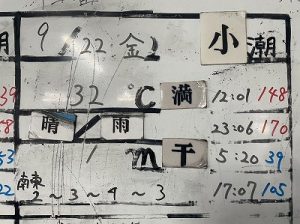 9/22 金 小潮
32 ℃ 満 12:01 148
晴/雨 23:06 170
1 m 干 5:20 39
南東
2~3~4~3 17:07 105